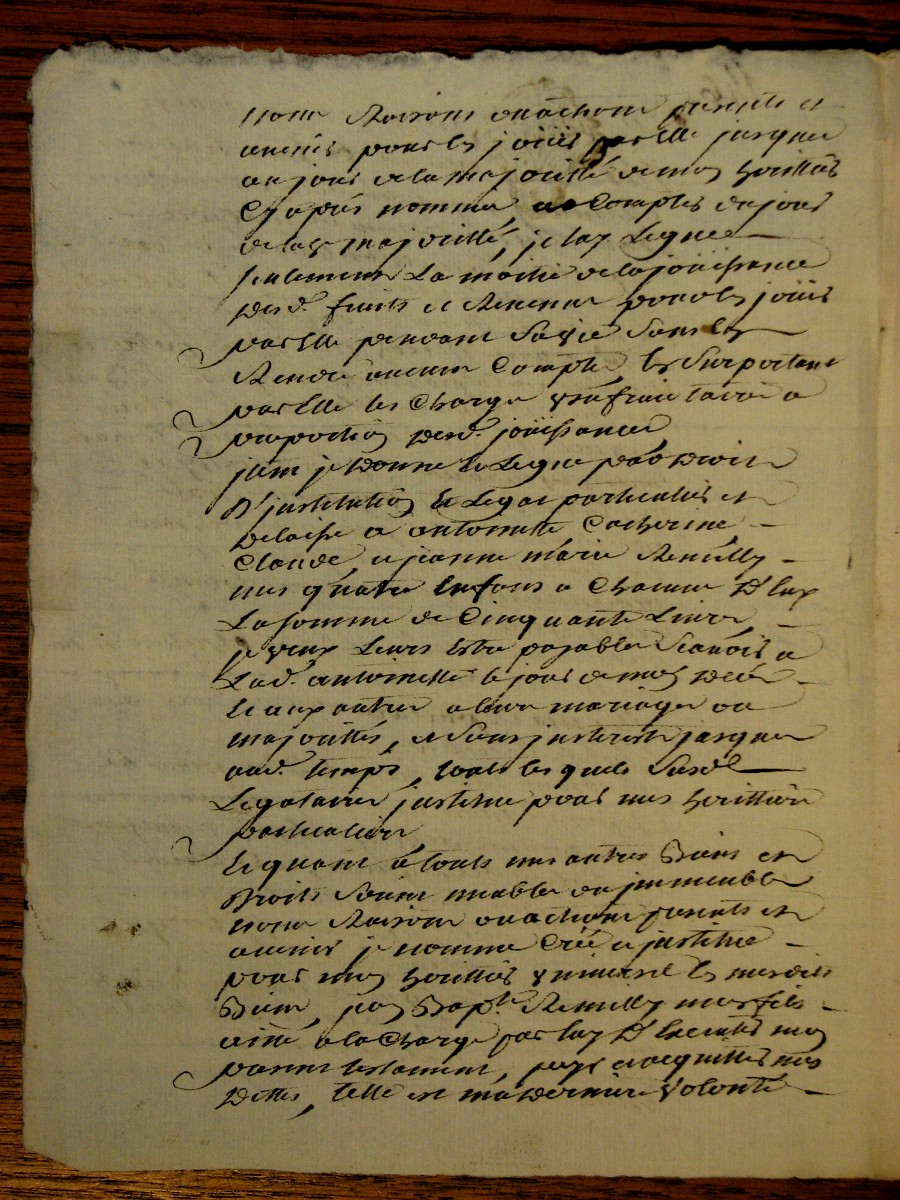 noms Raisons ou actions presents et
avenir pour les joüir par elle jusques
au jour de la majoritté de mon heritier
Cy après nommé a Compter du jour
de lad. majoritté, je luy Legue
seulement La moitié de la joüissance
desd. fruits et Revenus pour les joüir
par elle pendant sa vie sans les
Rendre aucun Compte, les surportant
par elle les Charges usufruitaires a
proportion desd. joüissances
item je donne et Legue par droit
D'institution et Legat particulier et
delaisse a antoinette Catherine
Claude, et jeanne marie Remilly
mes quatre enfans a Chacune d'eux
La somme de Cinquante Livres
je veux Leurs estre payables scavoir a
Lad. antoinette le jour de mon deces
et aux autres a leurs mariages ou
majorittés, et sans jnterest jusques
aud. temps, touts lesquels susd.
Legataires jnstitue pour mes heritiers
particuliers
Et quant à touts mes autres Biens et
Droits soient meubles ou jmmeubles
noms Raisons ou actions presents et
avenir je nomme Créé et jnstitue
pour mon heritier universel les mesdits
Biens, jean Bapt. Remilly mon fils
ainé a la Charge par luy D'executer mon
present testament, payer et acquitter mes
Dettes, telle est ma derniere volonté